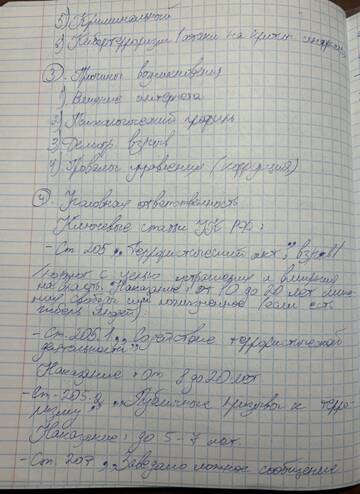 5) Криминальный
6) Кибертерроризм (атаки на критич. инфраст.
③. Причины возникновения
1) Влияние интернета
2) Психологический профиль
3) Демогр. взрыв
4) Провалы управления (коррупция)
④. Уголовная ответственность
Ключевые статьи УК РФ:
- Ст. 205 „Террористический акт": взрыв/
/поджог с целью устрашения и влияния
на власть. Наказание: от 10 до 20 лет лише-
ния свободы или пожизненное (если есть
гибель людей)
- Ст. 205.1 „Содействие террористической
деятельности"
Наказание: от 8 до 20 лет
- Ст. 205.2 „Публичные призывы к терро-
ризму"
Наказание: до 5-7 лет.
- Ст. 207 „Заведомо ложное сообщение